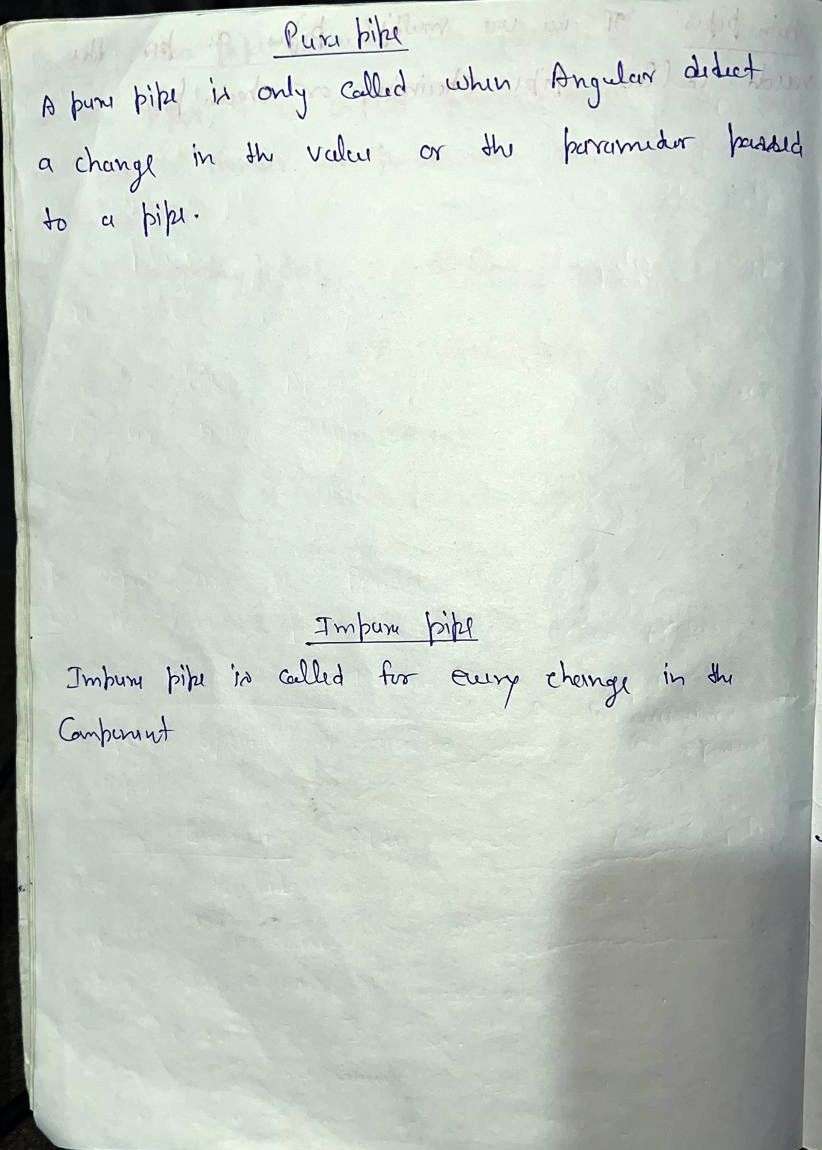 Pure pipe
A pure pipe is only called when Angular detect
a change in the value or the parameter passed
to a pipe.
Impure pipe
Impure pipe is called for every change in the
Component